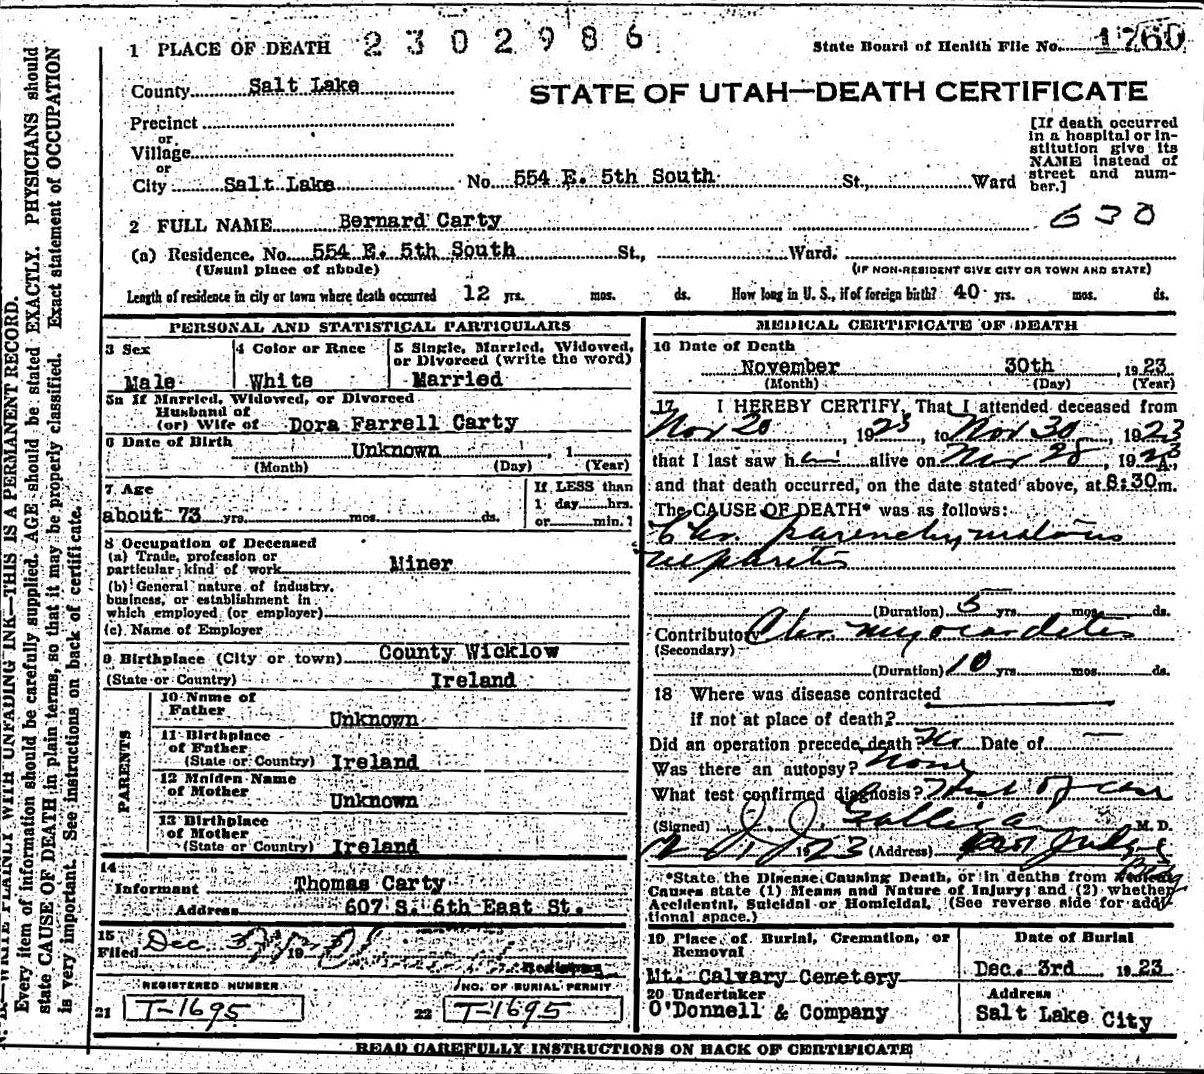 1 PLACE OF DEATH 2302986
State Board of Health File No. 1760
County Salt Lake
STATE OF UTAH—DEATH CERTIFICATE
Precinct
or
Village
or
City Salt Lake No. 554 E. 5th South St., Ward
[If death occurred
in a hospital or in-
stitution give its
NAME instead of
street and num-
ber.]
2 FULL NAME Bernard Carty
630
(a) Residence. No. 554 E. 5th South St., Ward.
(Usual place of abode) (IF NON-RESIDENT GIVE CITY OR TOWN AND STATE)
Length of residence in city or town where death occurred 12 yrs. mos. ds. How long in U. S., if of foreign birth? 40 yrs. mos. ds.
PERSONAL AND STATISTICAL PARTICULARS
3 Sex
Male
4 Color or Race
White
5 Single, Married, Widowed,
or Divorced (write the word)
Married
5a If Married, Widowed, or Divorced
Husband of
(or) Wife of Dora Farrell Carty
6 Date of Birth
Unknown , 1
(Month) (Day) (Year)
7 Age
about 73 yrs. mos. ds.
If LESS than
1 day hrs.
or min.?
8 Occupation of Deceased
(a) Trade, profession or
particular kind of work Miner
(b) General nature of industry,
business, or establishment in
which employed (or employer)
(c) Name of Employer
9 Birthplace (City or town) County Wicklow
(State or Country) Ireland
PARENTS
10 Name of
Father
Unknown
11 Birthplace
of Father
(State or Country) Ireland
12 Maiden Name
of Mother
Unknown
13 Birthplace
of Mother
(State or Country) Ireland
14
Informant Thomas Carty
Address 607 S. 6th East St.
15
Filed Dec 3 19
Registrar
REGISTERED NUMBER
21 T-1695
NO. OF BURIAL PERMIT
22 T-1695
MEDICAL CERTIFICATE OF DEATH
16 Date of Death
November 30th , 1923
(Month) (Day) (Year)
17 I HEREBY CERTIFY, That I attended deceased from
Nov 20 , 1923, to Nov 30 , 1923
that I last saw him alive on Nov 28 , 1923
and that death occurred, on the date stated above, at 8:30 A. m.
The CAUSE OF DEATH* was as follows:
Chr. parenchymatous
nephritis
(Duration) 5 yrs. mos. ds.
Contributory Chr. myocarditis
(Secondary)
(Duration) 10 yrs. mos. ds.
18 Where was disease contracted
If not at place of death?
Did an operation precede death? No Date of —
Was there an autopsy? None
What test confirmed diagnosis? Hist of case
(Signed) J. J. Galligan M. D.
12/1, 1923 (Address) Judge
Bldg
*State the Disease Causing Death, or in deaths from
Causes state (1) Means and Nature of Injury; and (2) whether
Accidental, Suicidal or Homicidal. (See reverse side for addi-
tional space.)
19 Place of Burial, Cremation, or
Removal
Mt. Calvary Cemetery
Date of Burial
Dec. 3rd 1923
20 Undertaker
O'Donnell & Company
Address
Salt Lake City
READ CAREFULLY INSTRUCTIONS ON BACK OF CERTIFICATE
WRITE PLAINLY WITH UNFADING INK—THIS IS A PERMANENT RECORD.
Every item of information should be carefully supplied. AGE should be stated EXACTLY. PHYSICIANS should
state CAUSE OF DEATH in plain terms, so that it may be properly classified. Exact statement of OCCUPATION
is very important. See instructions on back of certificate.